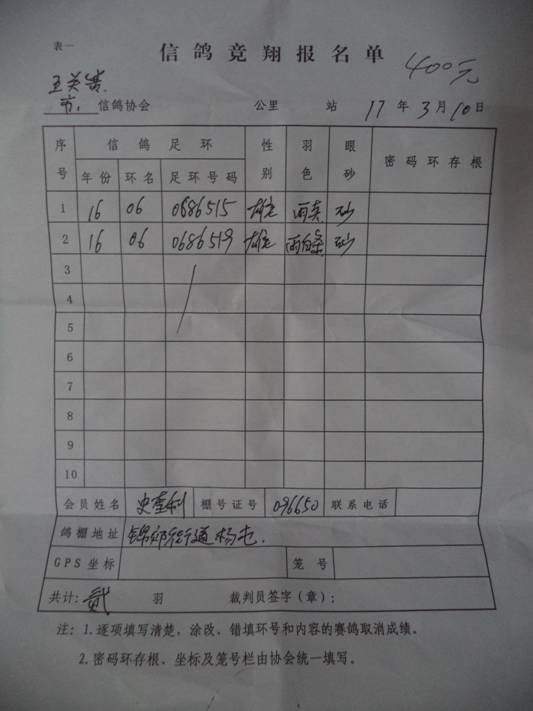 表一
信鸽竞翔报名单
400元
王关贵
市, 信鸽协会 公里 站 17 年 3 月 10 日
序号 信鸽足环 性别 羽色 眼砂 密码环存根
年份 环名 足环号码
1 16 06 0686515 雄 雨 砂
2 16 06 0686519 雄 雨白条 砂
3
4
5
6
7
8
9
10
会员姓名 史奎利 棚号证号 096650 联系电话
鸽棚地址 锦郊街道杨屯.
GPS坐标 笼号
共计: 贰 羽 裁判员签字（章）:
注: 1.逐项填写清楚，涂改、错填环号和内容的赛鸽取消成绩。
2.密码环存根、坐标及笼号栏由协会统一填写。